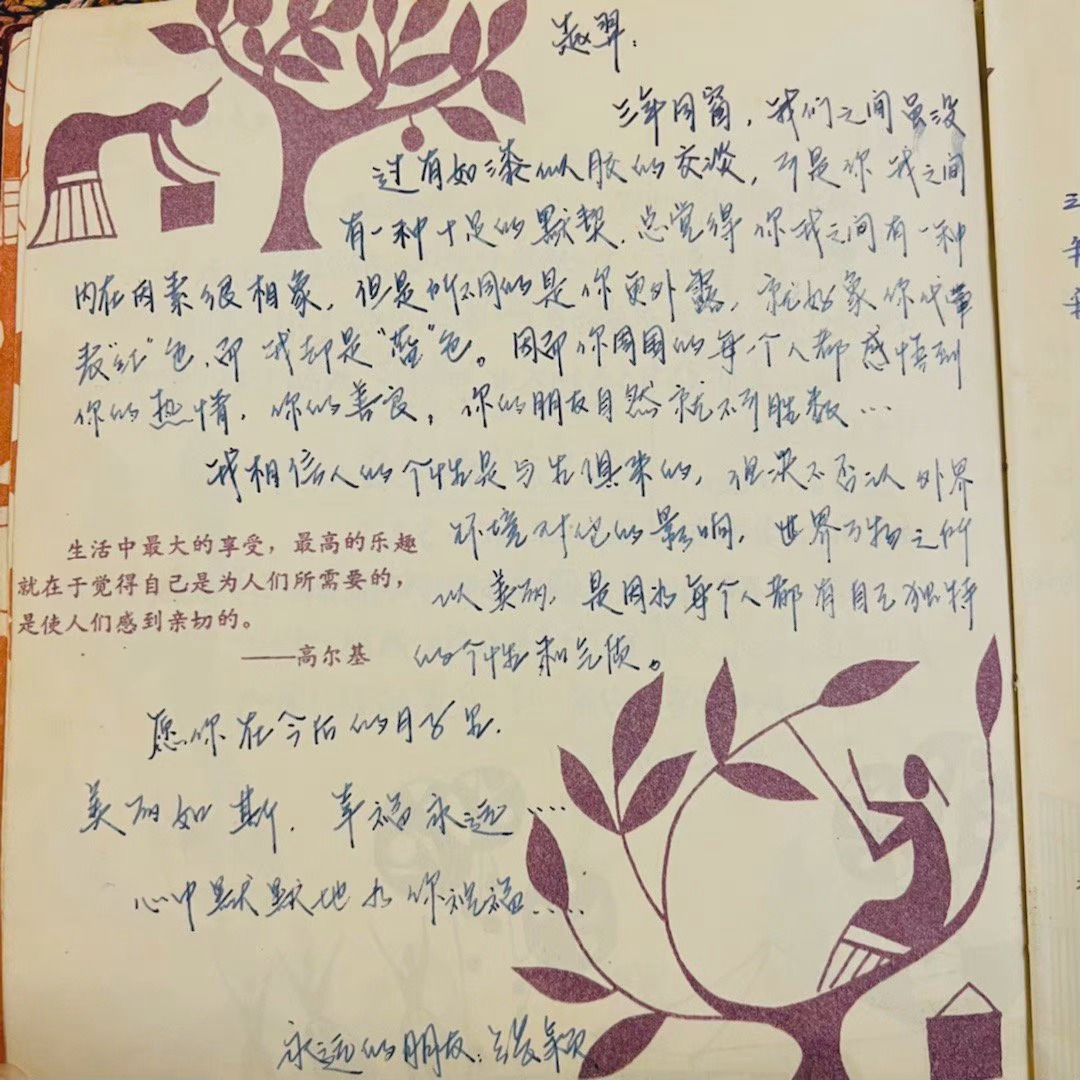 赵羿:
三年同窗，我们之间虽没
过有如漆似胶的交谈，可是你我之间
有一种十足的默契.总觉得你我之间有一种
内在因素很相象，但是所不同的是你更外露，就好象你代
表"红"色，而我却是"蓝"色。因而你周围的每一个人都感悟到
你的热情，你的善良，你的朋友自然就不可胜数…
我相信人的个性是与生俱来的，但决不否认外界
环境对他的影响，世界万物之所
以美丽，是因为每个人都有自己独特
的个性和气质。
生活中最大的享受，最高的乐趣
就在于觉得自己是为人们所需要的，
是使人们感到亲切的。
——高尔基
愿你在今后的日子里.
美丽如斯.幸福永远……
心中默默地为你祝福……
永远的朋友:颖
三
年